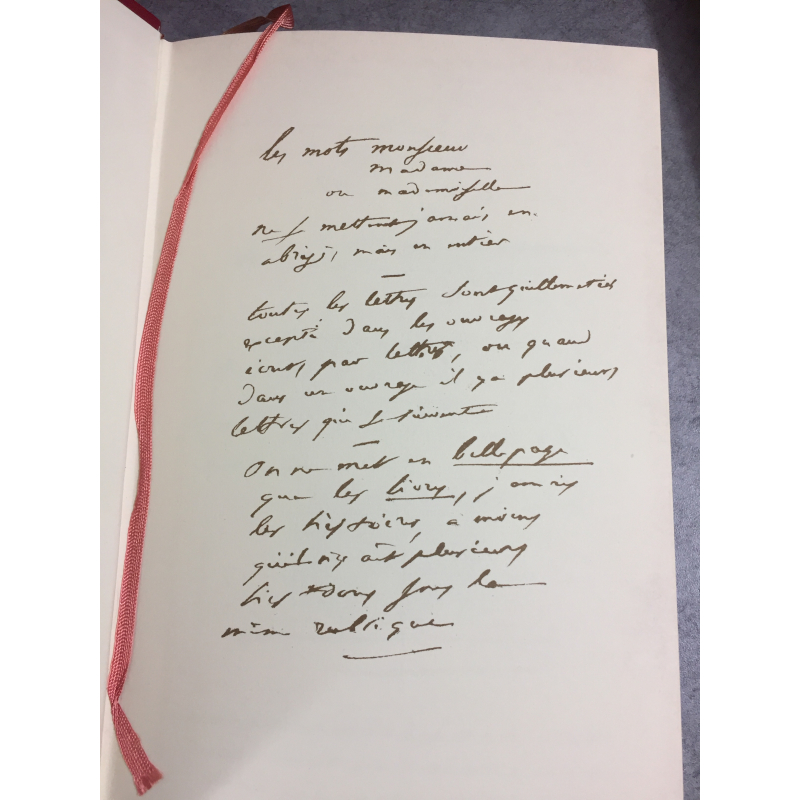 les mots monsieur
madame
ou mademoiselle
ne se mettent jamais en
abrégé, mais en entier
toutes les lettres sont guillemetées
excepté dans les ouvrages
écrits par lettres, ou quand
dans un ouvrage il y a plusieurs
lettres qui se suivent
On ne met en belle page
que les livres, jamais
les histoires, à moins
qu'il n'y ait plusieurs
histoires sous la
même rubrique